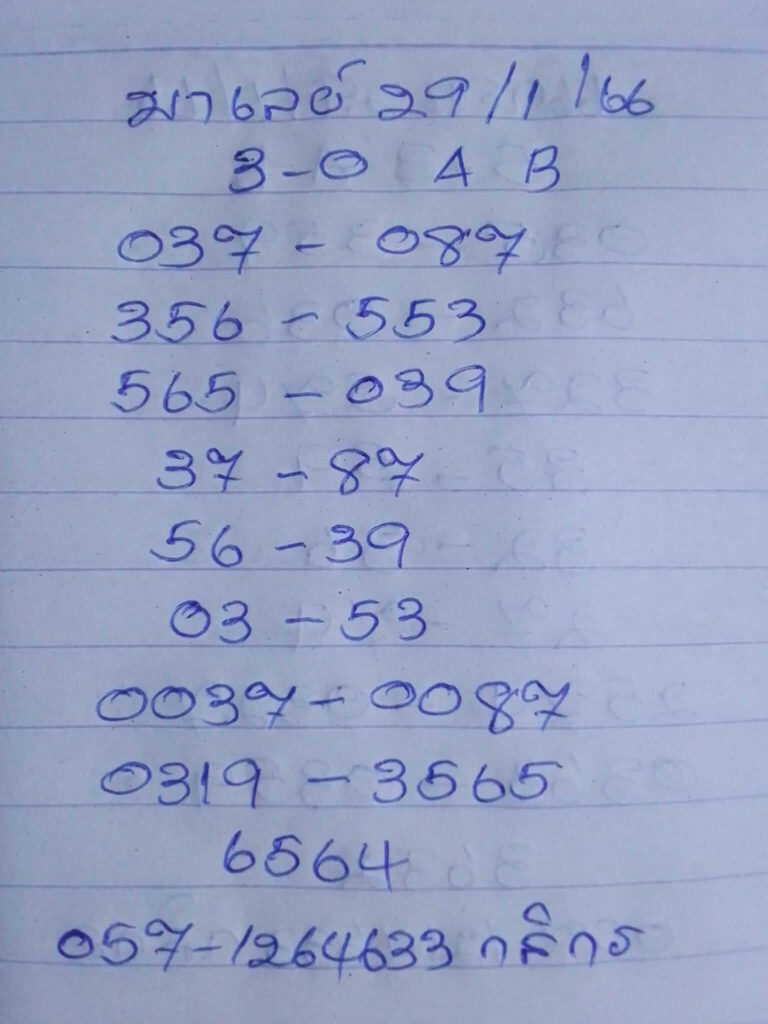 มาเลย์ 29/1/66
3-0 A B
037 - 087
356 - 553
565 - 039
37 - 87
56 - 39
03 - 53
0037 - 0087
0319 - 3565
6564
057-1264633 กสิกร